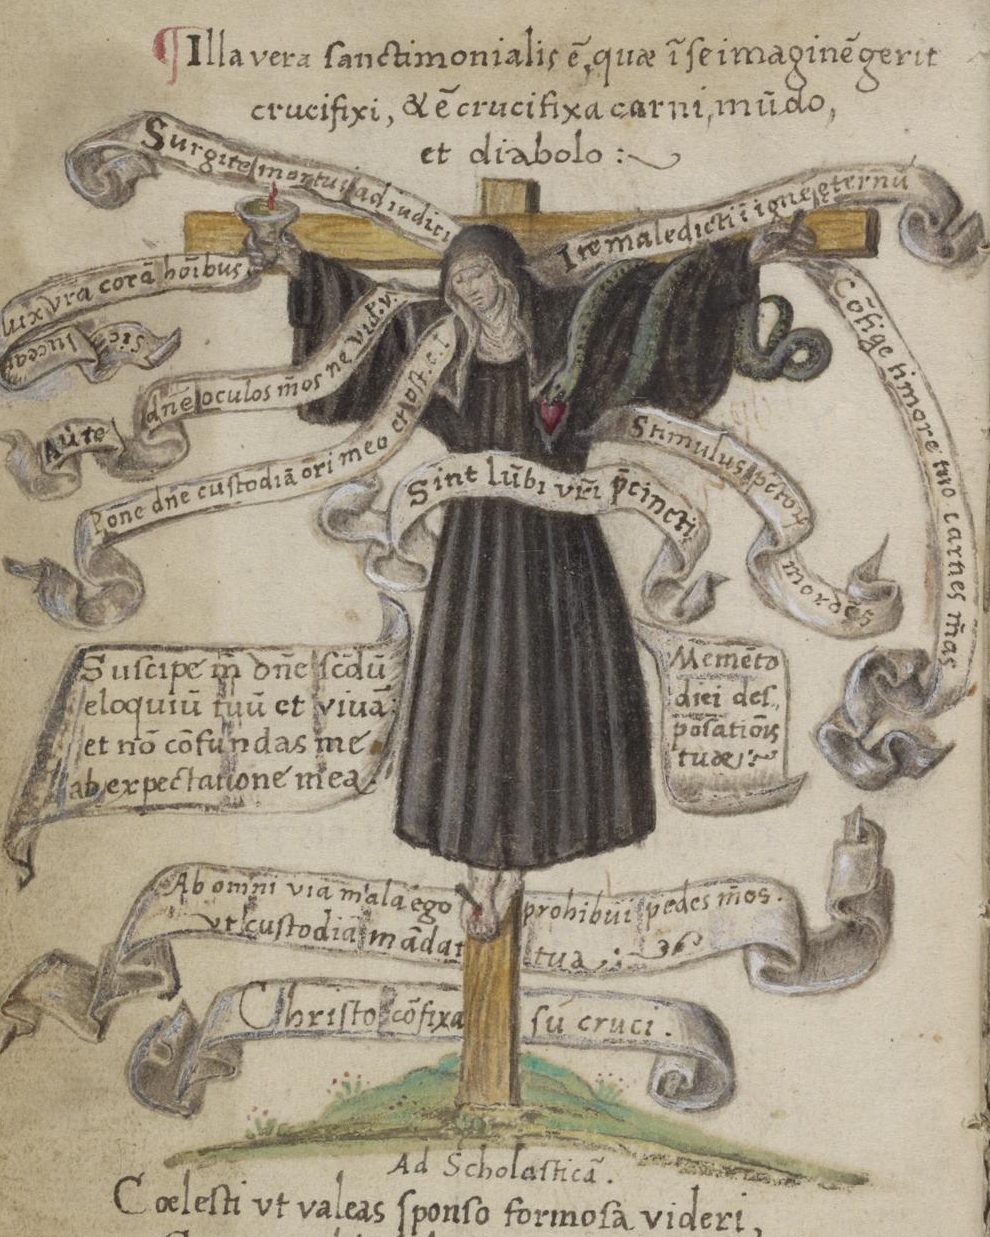 ¶ Illa vera sanctimonialis ē, quæ ī se imaginē gerit
crucifixi, & ē crucifixa carni, mūdo,
et diabolo :~
Surgite mortui ad iudici
Ite maledicti ī ignē eternū
lux vra corā hoībus
Sic luceat
dnē oculos mōs ne vid. v.
Aūte
Pone dnē custodiā ori meo et ost. c. l
Cōfige timore tuo carnes mās
Stimulus
mordēs
Sint lūbi vrī p̄cincti
Suscipe m̄ dnē scdū
eloquiū tuū et viuā
et nō cōfundas me
ab expectatione mea
Memēto
diei des,,
posatiōis
tuæ :~
Ab omni via mala ego prohibui pedes mōs.
vt custodiā mādat tua ;:
Christo cōfixa sū cruci.
Ad Scholasticā.
Cœlesti vt valeas sponso formosa videri,